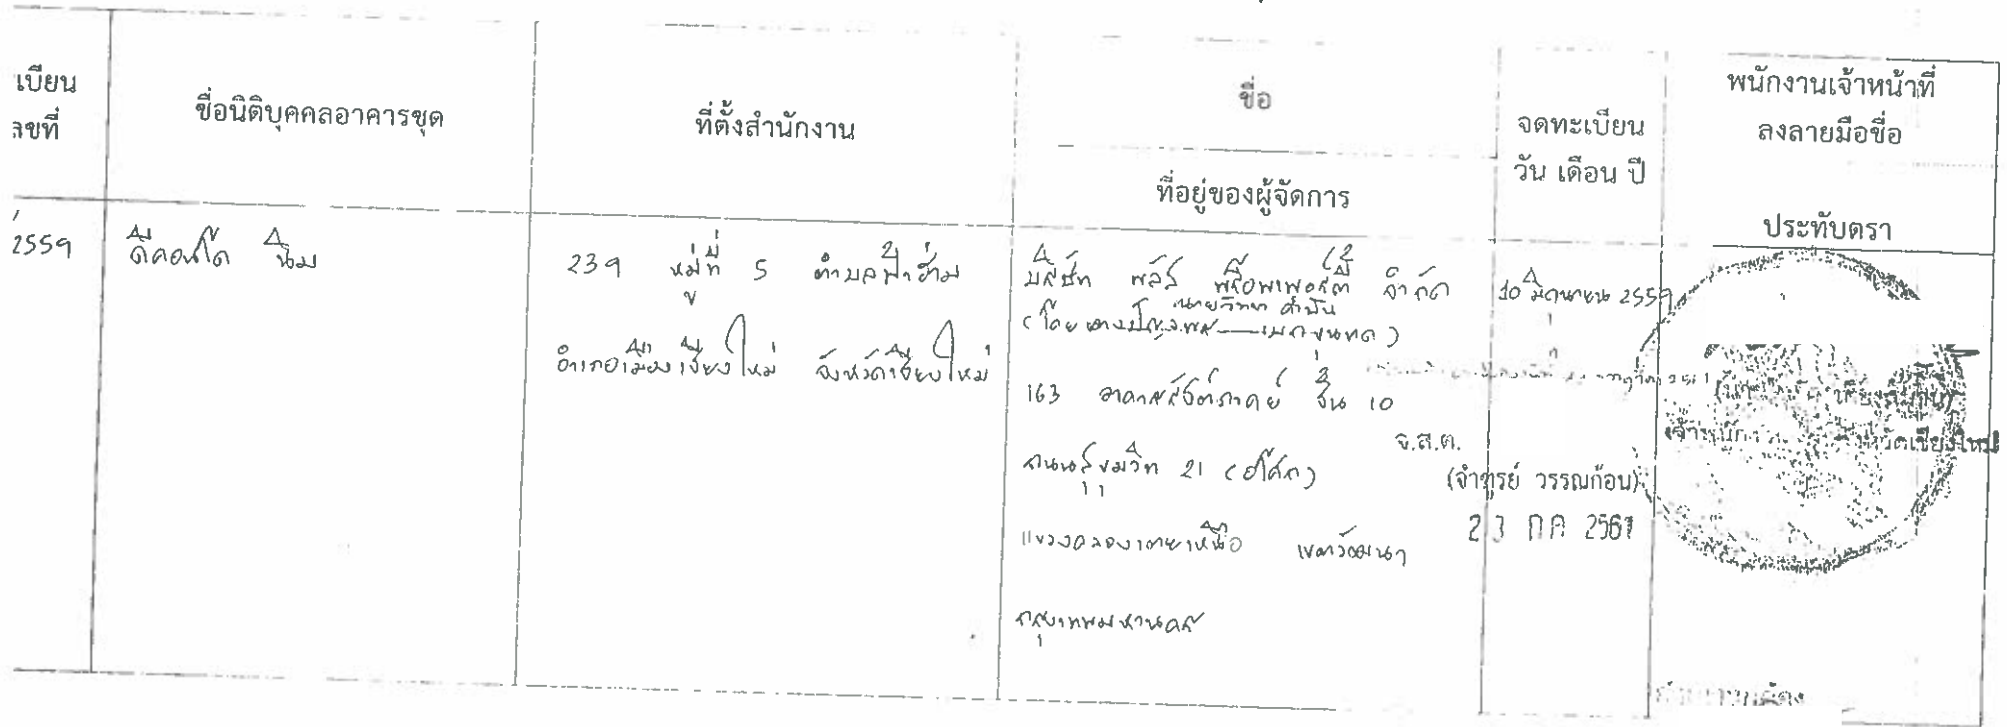 เบียน
ลขที่
ชื่อนิติบุคคลอาคารชุด
ที่ตั้งสำนักงาน
ชื่อ
ที่อยู่ของผู้จัดการ
จดทะเบียน
วัน เดือน ปี
พนักงานเจ้าหน้าที่
ลงลายมือชื่อ
ประทับตรา
/2559
ดีคอนโด นิม
239 หมู่ที่ 5 ตำบลฟ้าฮ่าม
อำเภอเมืองเชียงใหม่ จังหวัดเชียงใหม่
บริษัท พลัส พร็อพเพอร์ตี้ จำกัด
นายวิทยา คำปัน
(โดย
163 อาคารรัชต์ภาคย์ ชั้น 10
ถนนสุขุมวิท 21 (อโศก)
แขวงคลองเตยเหนือ เขตวัฒนา
กรุงเทพมหานคร
10 มิถุนายน 2559
จ.ส.ต.
(จำรูรย์ วรรณก้อน)
23 กค 2561